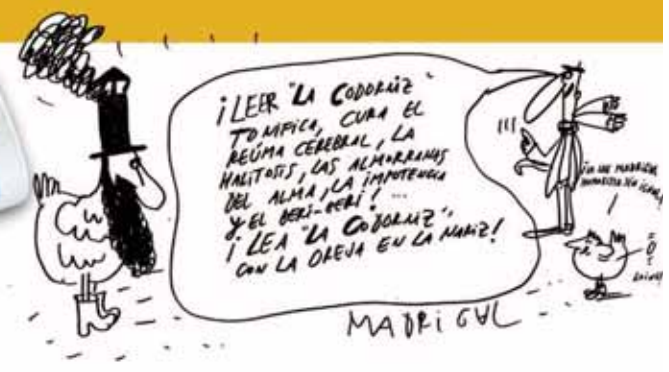 ¡LEER "LA CODORNIZ"
TONIFICA, CURA EL
REÚMA CEREBRAL, LA
HALITOSIS, LAS ALMORRANAS
DEL ALMA, LA IMPOTENCIA
Y EL BERI-BERI! ...
¡LEA "LA CODORNIZ",
CON LA OREJA EN LA NARIZ!
MADRIGAL